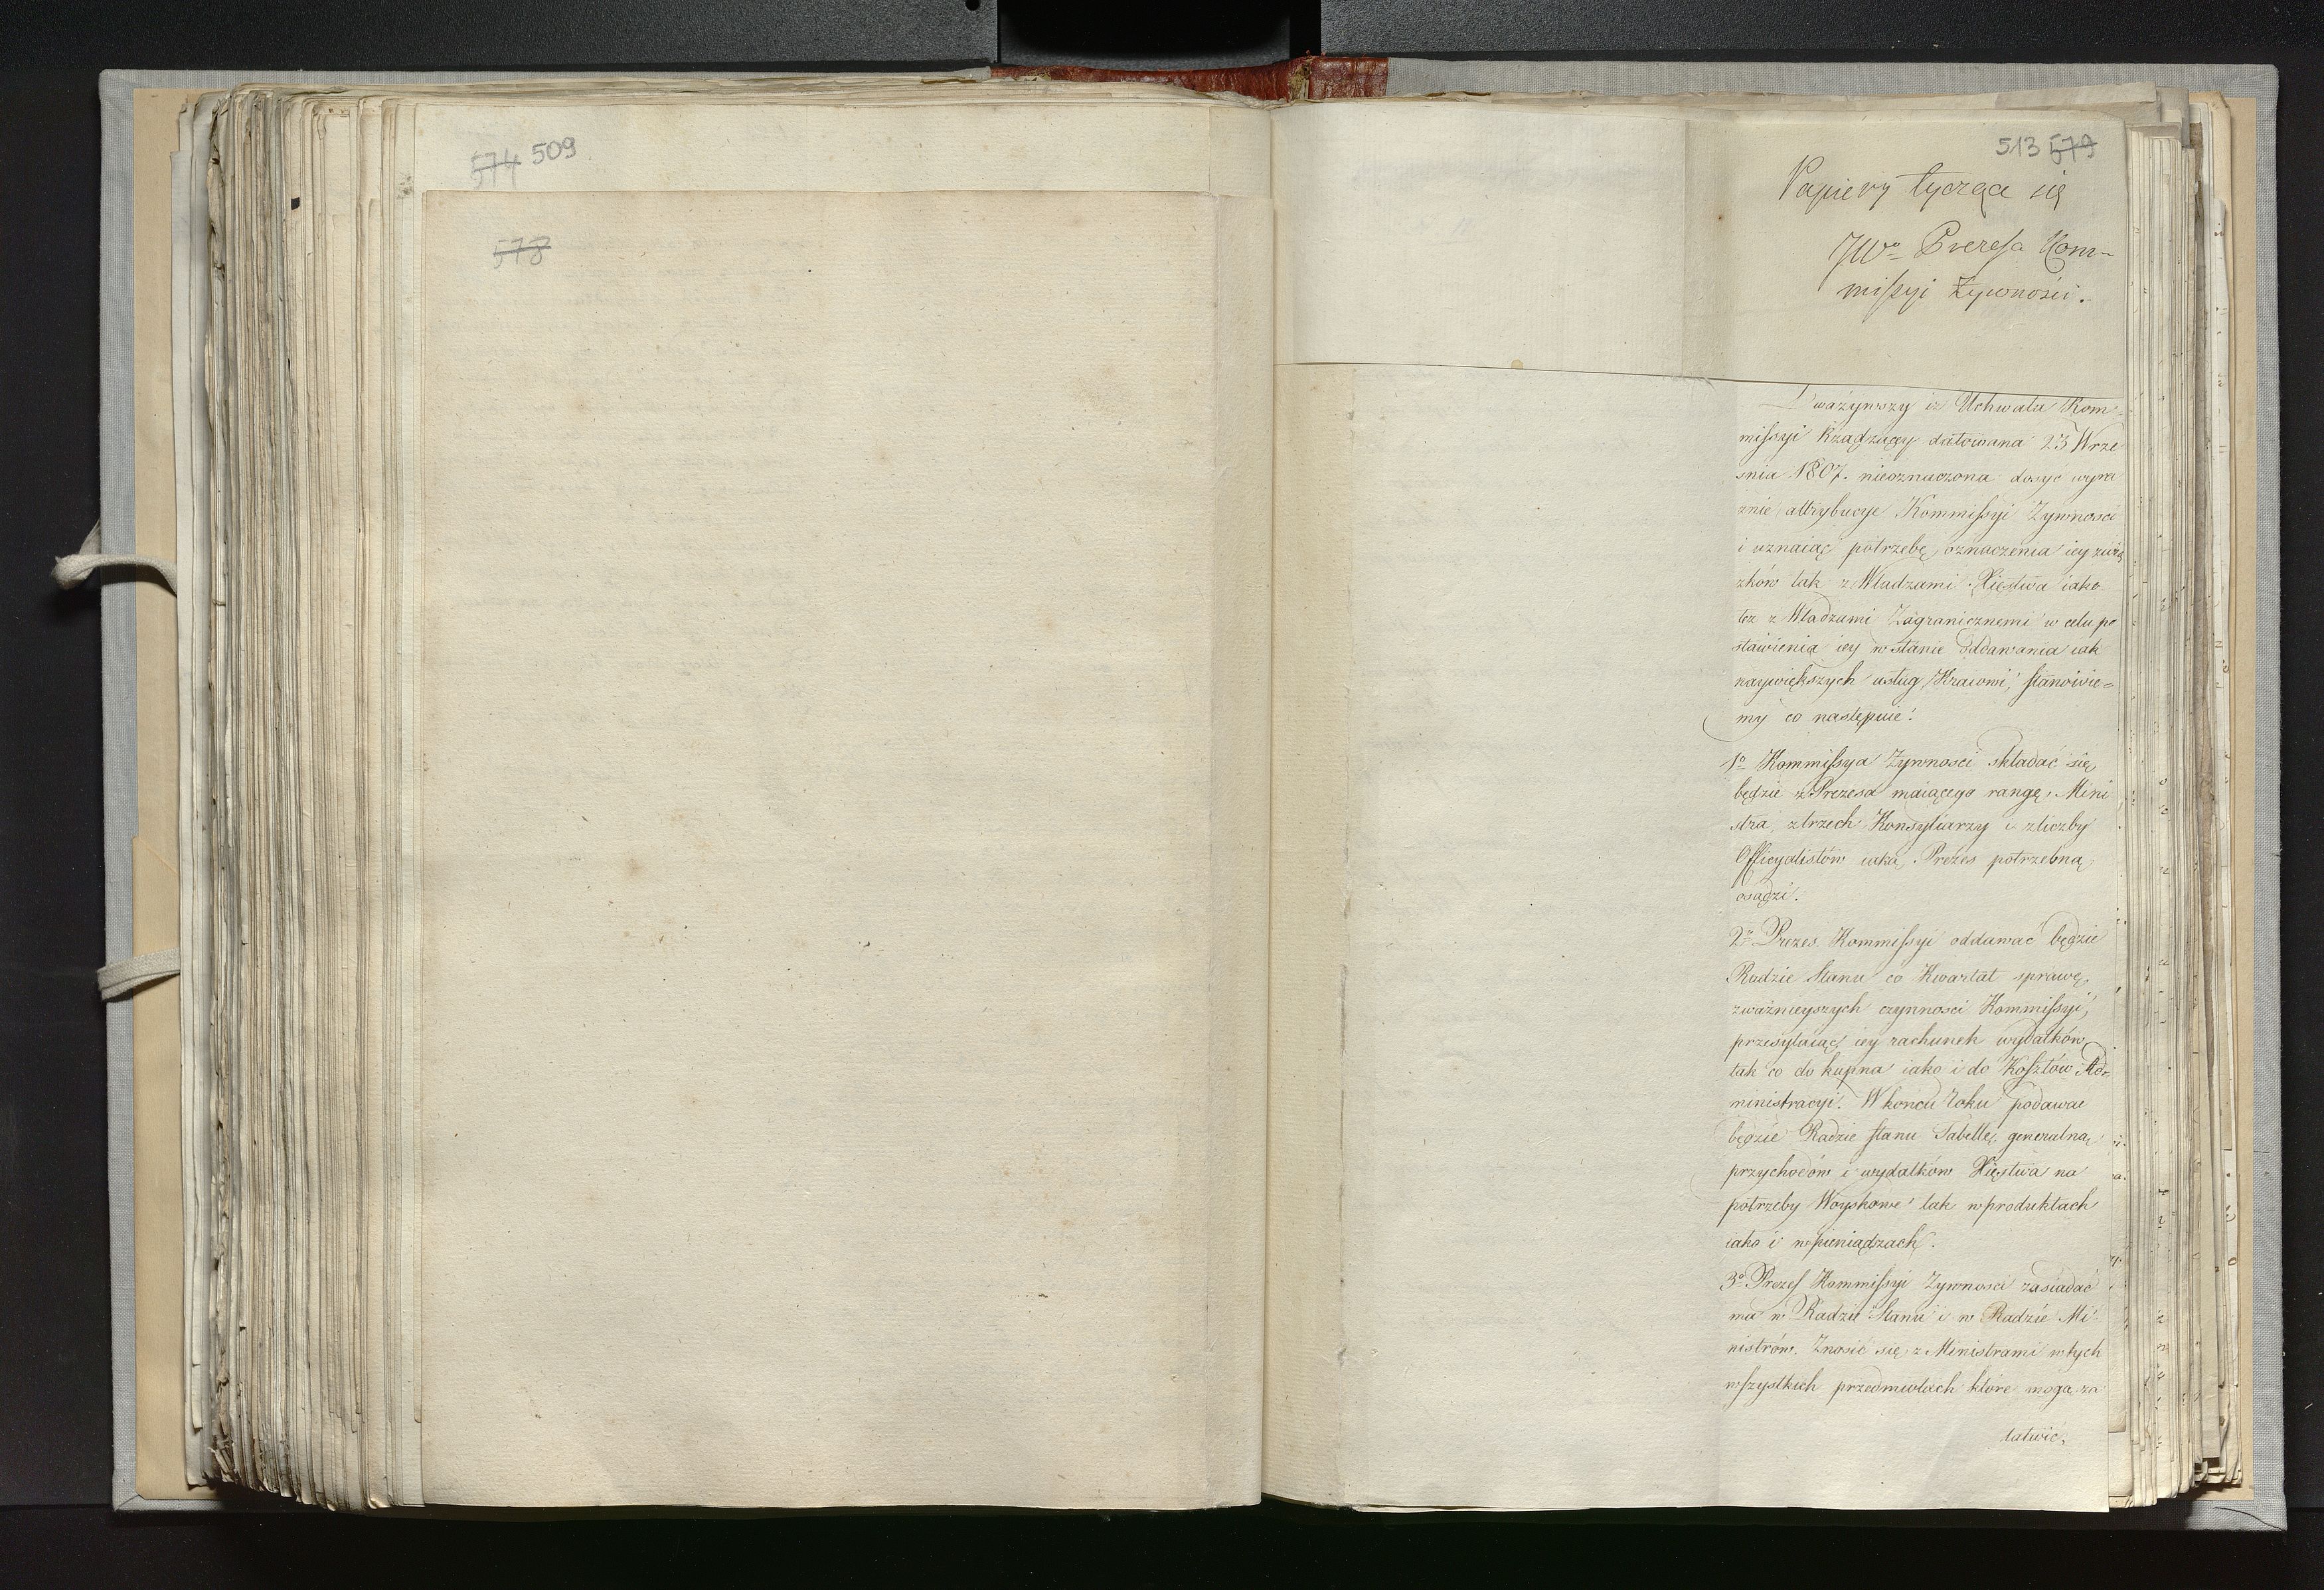 574 509
578
513 579
Papiery tyczące się
JWo Prezesa Kom-
missyi Żywnosci.
Uważywszy iż Uchwała Kom-
missyi Rządzącey datowana 23 Wrze
snia 1807. nieoznaczona dosyć wyra
znie attrybucye Kommissyi Żywnosci
i uznaiąc potrzebę oznaczenia iey zwią
zków tak z Władzami Xięstwa iako
tez z Władzami Zagranicznemi w celu po
stawienia iey w stanie oddawania iak
naywiększych usług Kraiowi, stanowie=
my co następuie:
1o Kommissya Żywnosci składać się
będzie z Prezesa maiącego rangę Mini
stra, z trzech Konsyliarzy i z liczby
Officyalistów iaką Prezes potrzebną
osądzi.
2o Prezes Kommissyi oddawać będzie
Radzie Stanu co Kwartał sprawę
zważnieyszych czynnosci Kommissyi,
przesyłaiąc iey rachunek wydatków
tak co do kupna iako i do Kosztów Ad-
ministracyi. W koncu roku podawać
będzie Radzie stanu Tabellę generalną
przychodów i wydatków Xięstwa na
potrzeby Woyskowe tak w produktach
iako i w pieniądzach.
3o Prezes Kommissyi Żywnosci zasiadać
ma w Radzie Stanu i w Radzie Mi-
nistrów. Znosić się z Ministrami w tych
wszystkich przedmiotach ktore mogą za
łatwić,